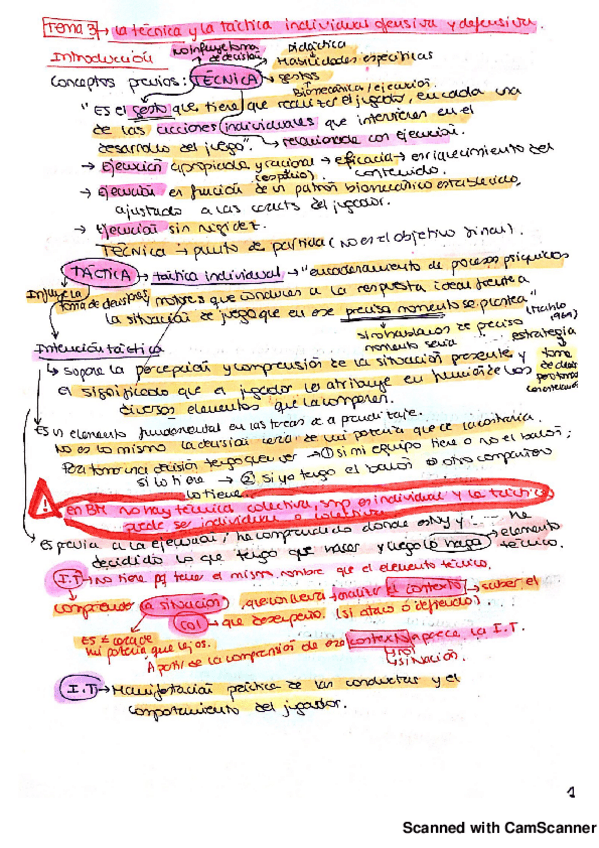 Tema 3 → la técnica y la táctica individual ofensiva y defensiva.
Introducción
no influye toma de decisión
Didáctica
Habilidades específicas
gestos
Biomecánica / ejecución.
Conceptos previos: TÉCNICA
"Es el gesto que tiene que realizar el jugador, en cada una
de las acciones individuales que intervienen en el
desarrollo del juego". → relacionada con ejecución.
→ Ejecución apropiada y racional → eficacia → enriquecimiento del
(espacio). contenido.
→ Ejecución en función de un patrón biomecánico establecido,
ajustado a las caracts del jugador.
→ Ejecución sin rigidez.
Técnica → punto de partida (no es el objetivo final).
TÁCTICA → táctica individual → "encadenamiento de procesos psíquicos
Influye la toma de decisiones
y motores que conducen a la respuesta ideal frente a
la situación de juego que en ese preciso momento se plantea"
(Mahlo 1969)
si no hablamos de preciso
momento sería estrategia
Intención táctica
↳ supone la percepción y comprensión de la situación presente y
el significado que el jugador le atribuye en función de los
diversos elementos que la componen.
toma de decis
Es un elemento fundamental en las tareas de aprendizaje.
No es lo mismo la decisión cerca de mi portería que de la contraria.
Para tomar una decisión tengo que ver → ① si mi equipo tiene o no el balón;
si lo tiene → ② si yo tengo el balón o otro compañero
lo tiene.
⚠ en BM no hay técnica colectiva, smp es individual y la táctica
puede ser individual o colectiva
es previa a la ejecución, he comprendido donde estoy y ... he
decidido lo que tengo que hacer y luego lo hago → elemento
técnico.
I.T → no tiene pq tener el mismo nombre que el elemento técnico.
comprender la situación, que conlleva analizar el contexto → saber el
rol → que desempeño. (si ataco ó defiendo)
es ≠ cerca de
mi portería que lejos.
A partir de la comprensión de ese contexto aparece la I.T.
→ rol
→ situación.
I.T → Manifestación práctica de las conductas y el
comportamiento del jugador.
1
Scanned with CamScanner